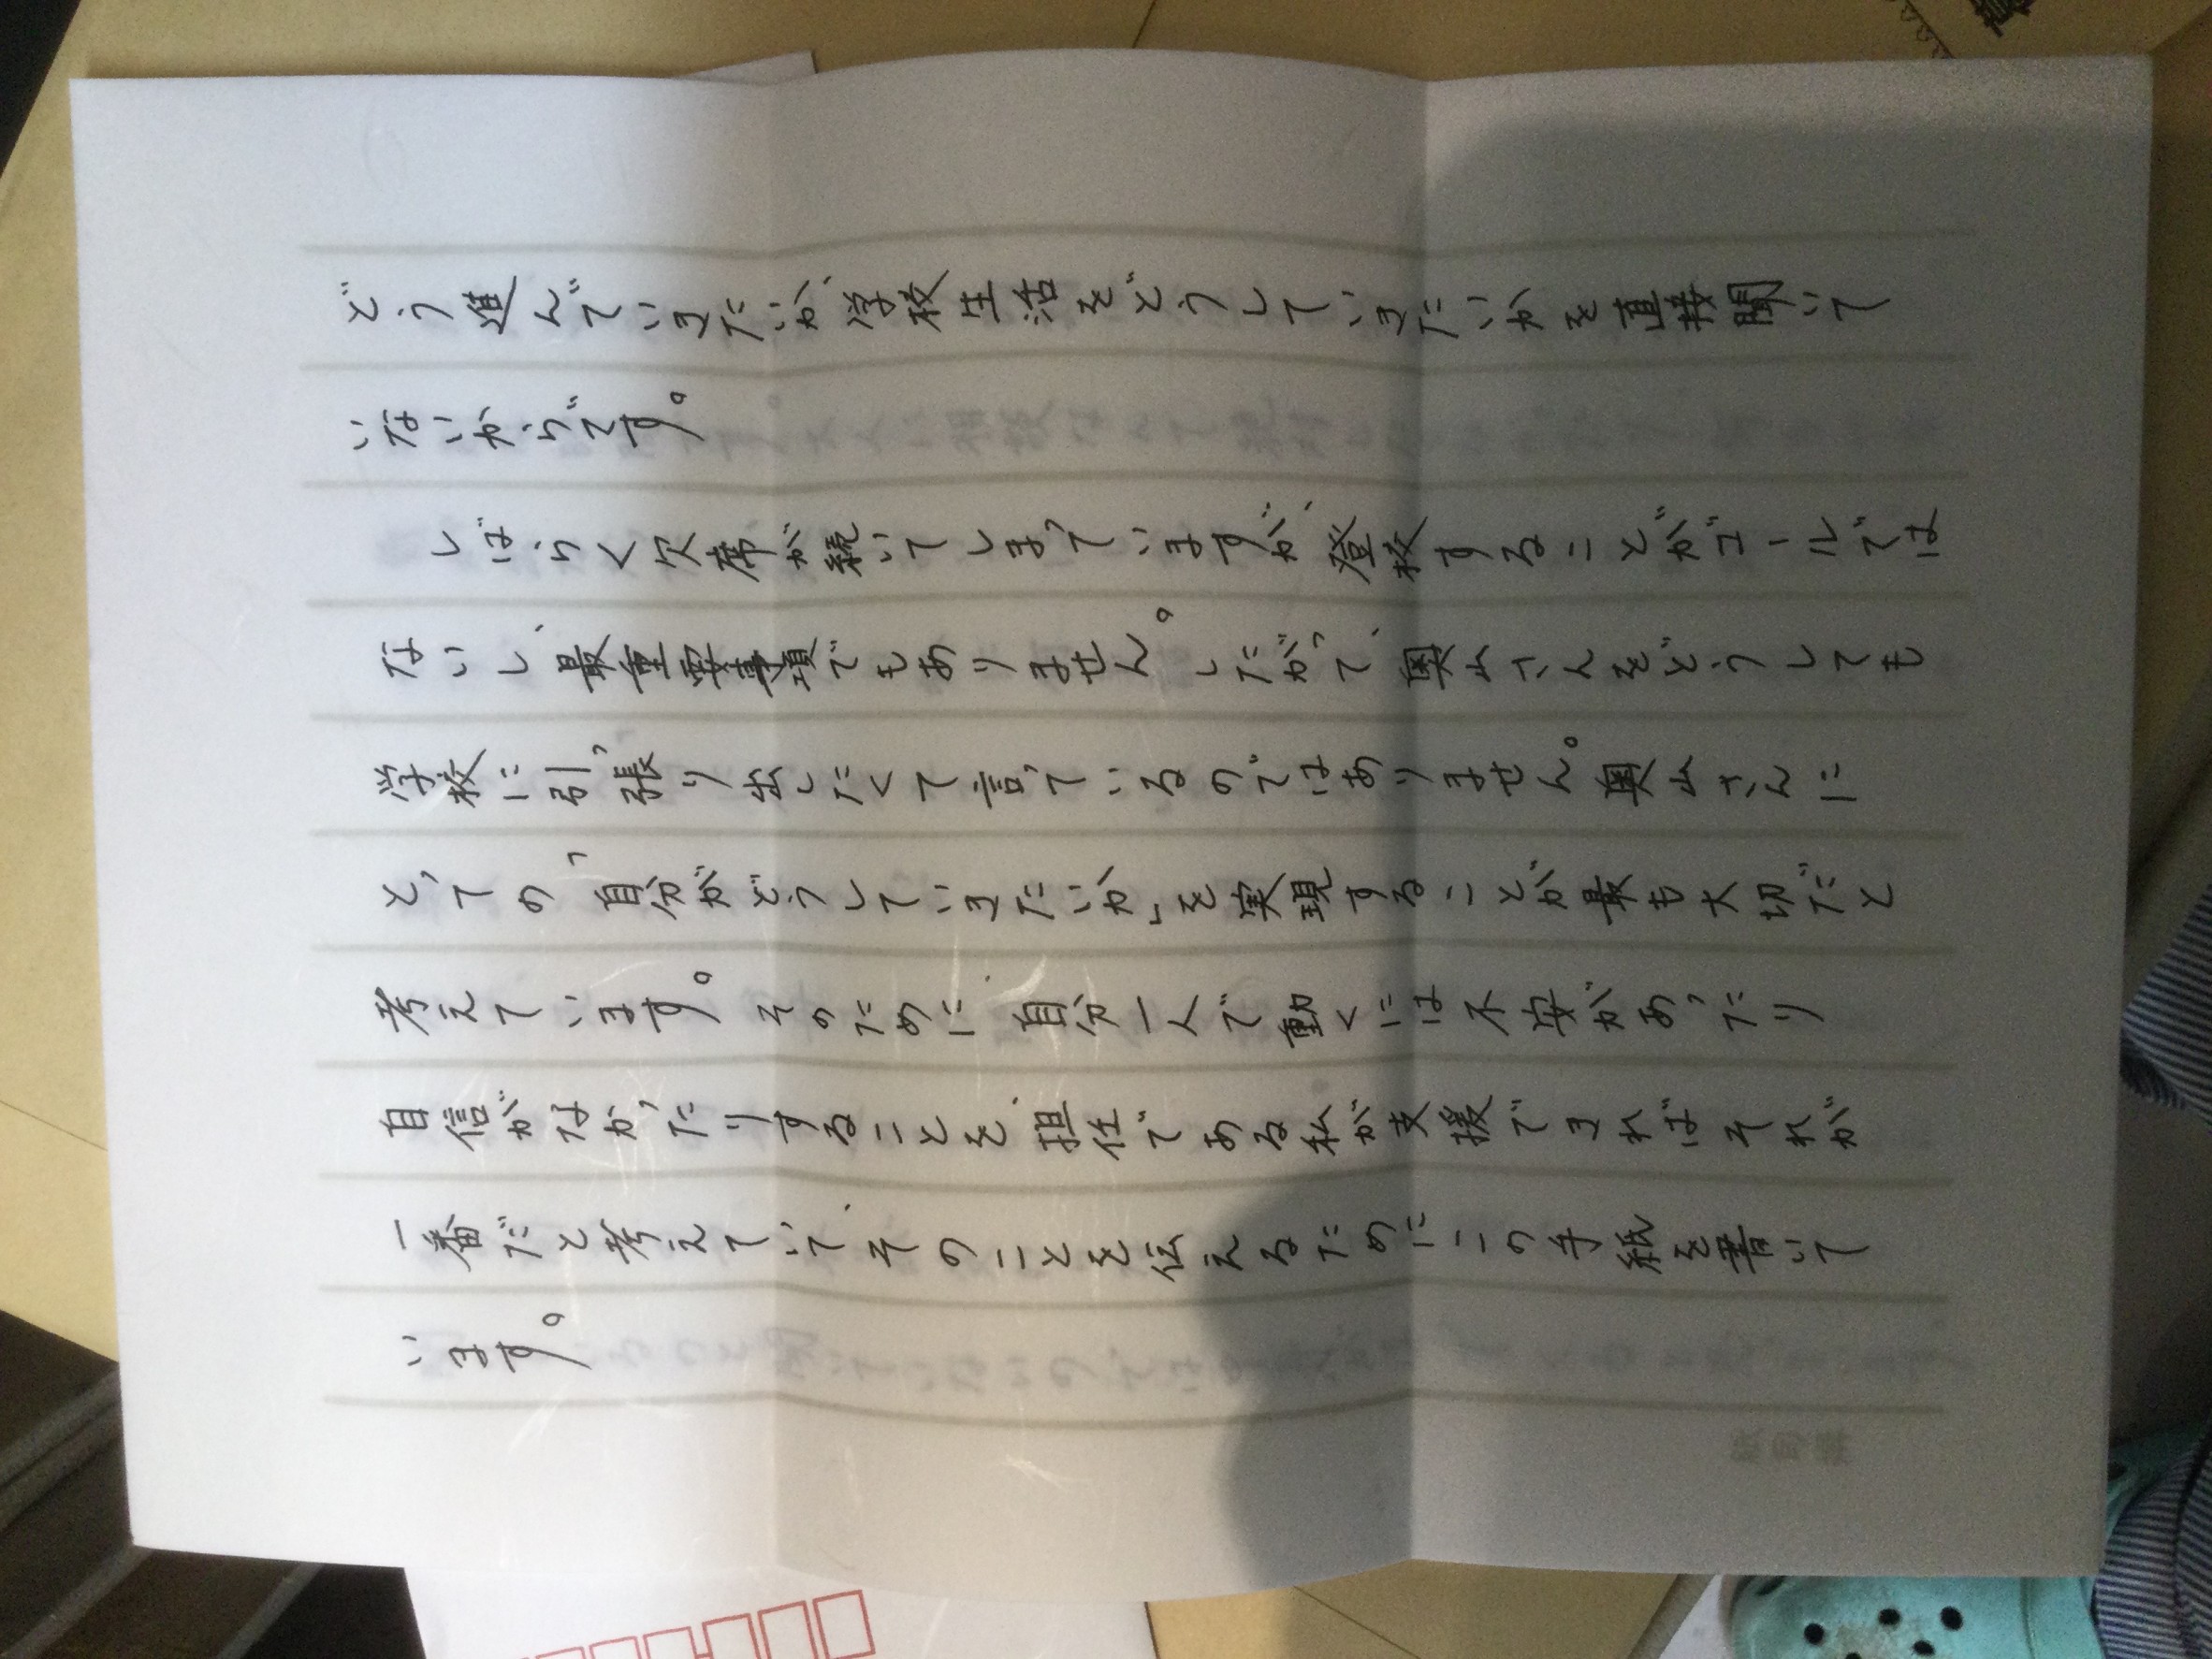 どう進んでいきたいか、学校生活をどうしていきたいかを直接聞いて
いないからです。
しばらく欠席が続いてしまっていますが、登校することがゴールでは
ないし、最重要事項でもありません。したがって、奥山さんをどうしても
学校に引っ張り出したくて言っているのではありません。奥山さんに
とっての「自分がどうしていきたいか」を実現することが最も大切だと
考えています。そのために、自分一人で動くには不安があったり
自信がなかったりすることを、担任である私が支援できればそれが
一番だと考えていて、そのことを伝えるためにこの手紙を書いて
います。